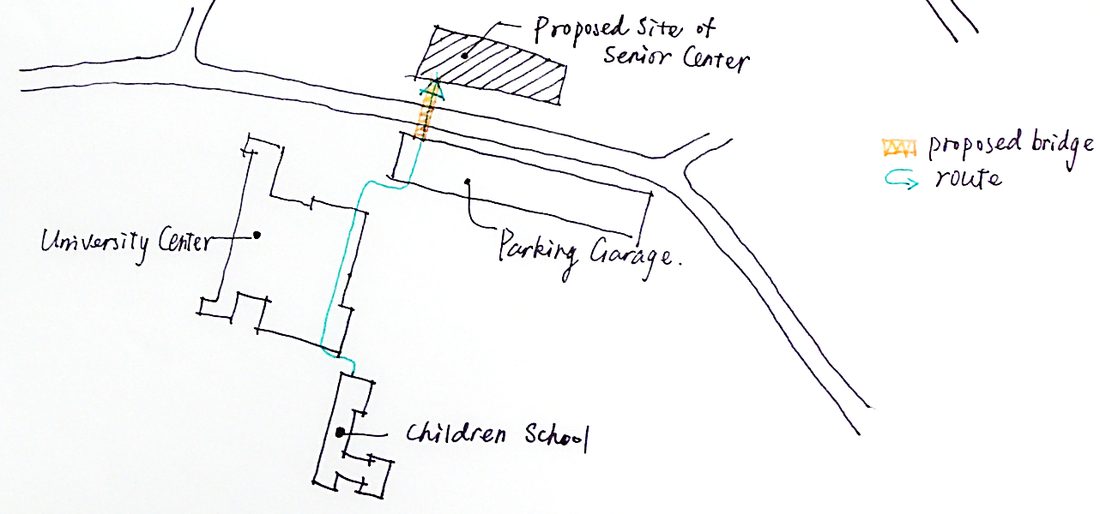 Proposed Site of
Senior Center
proposed bridge
route
University Center
Parking Garage.
Children School